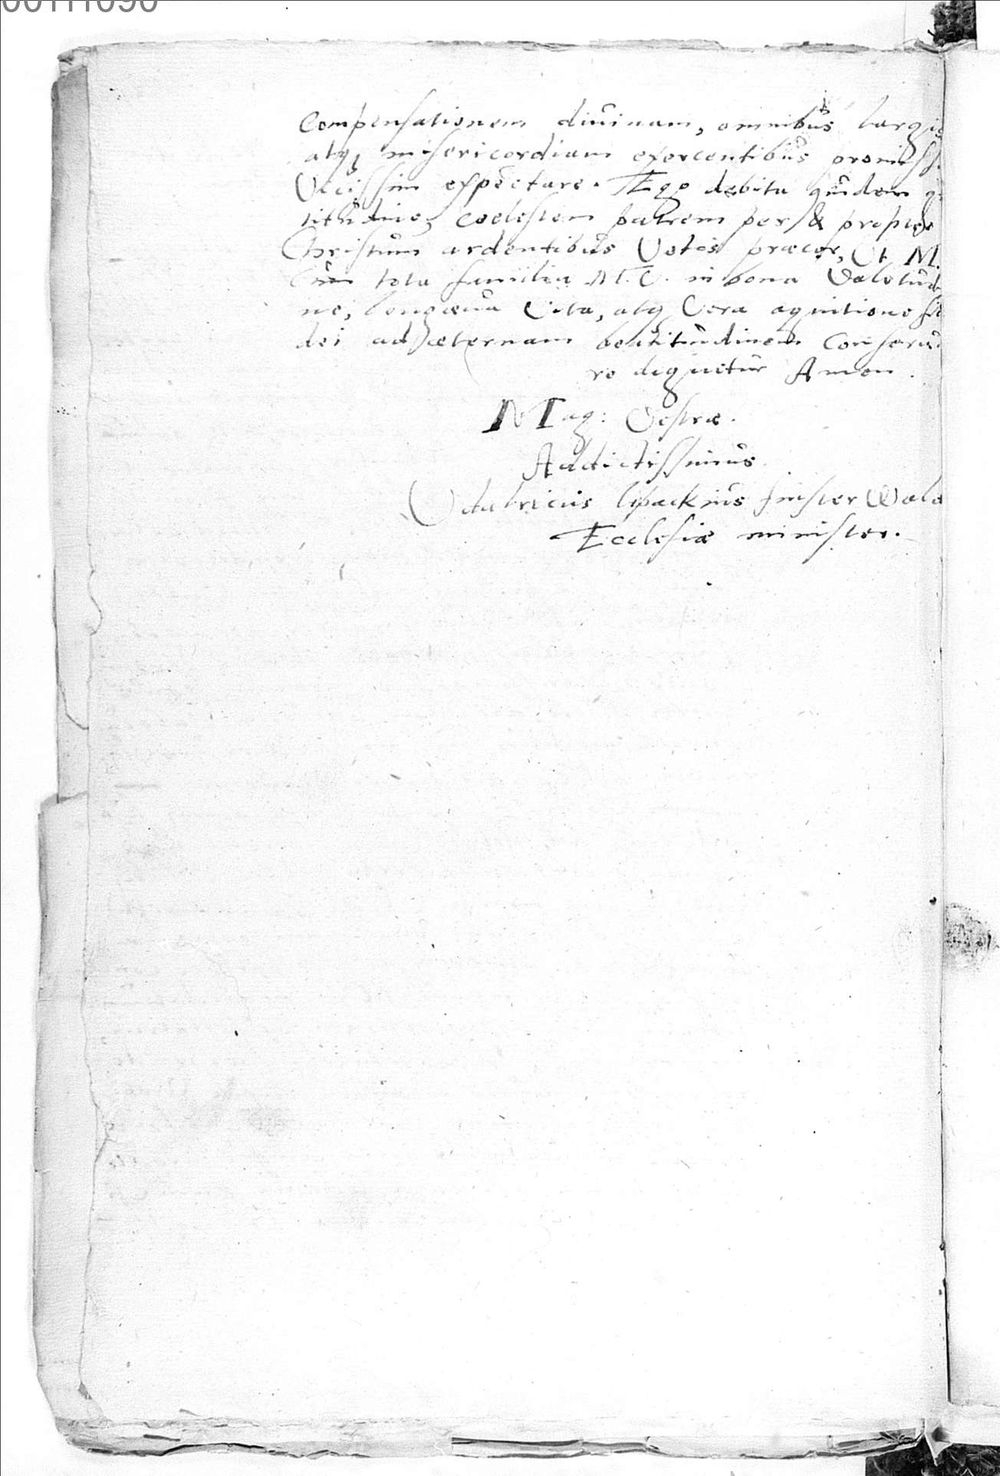 00111090
compensationem diuinam, omnibus largie
atq; misericordiam exercentibus promiss
Vicissim expectare. Ego debita quidem g
titudine, coelestem patrem per & propter
Christum ardentibus Votis precor, Ut M.
Cum tota familia M. V. in bona Valetudi
ne, longæua Vita, atq; Vera agnitione fi
dei ad æternam beatitudinem conserua
re dignetur Amen.
Mag: Vestræ.
Addictissimus
Vdalricus finster Wald
Ecclesiæ minister.